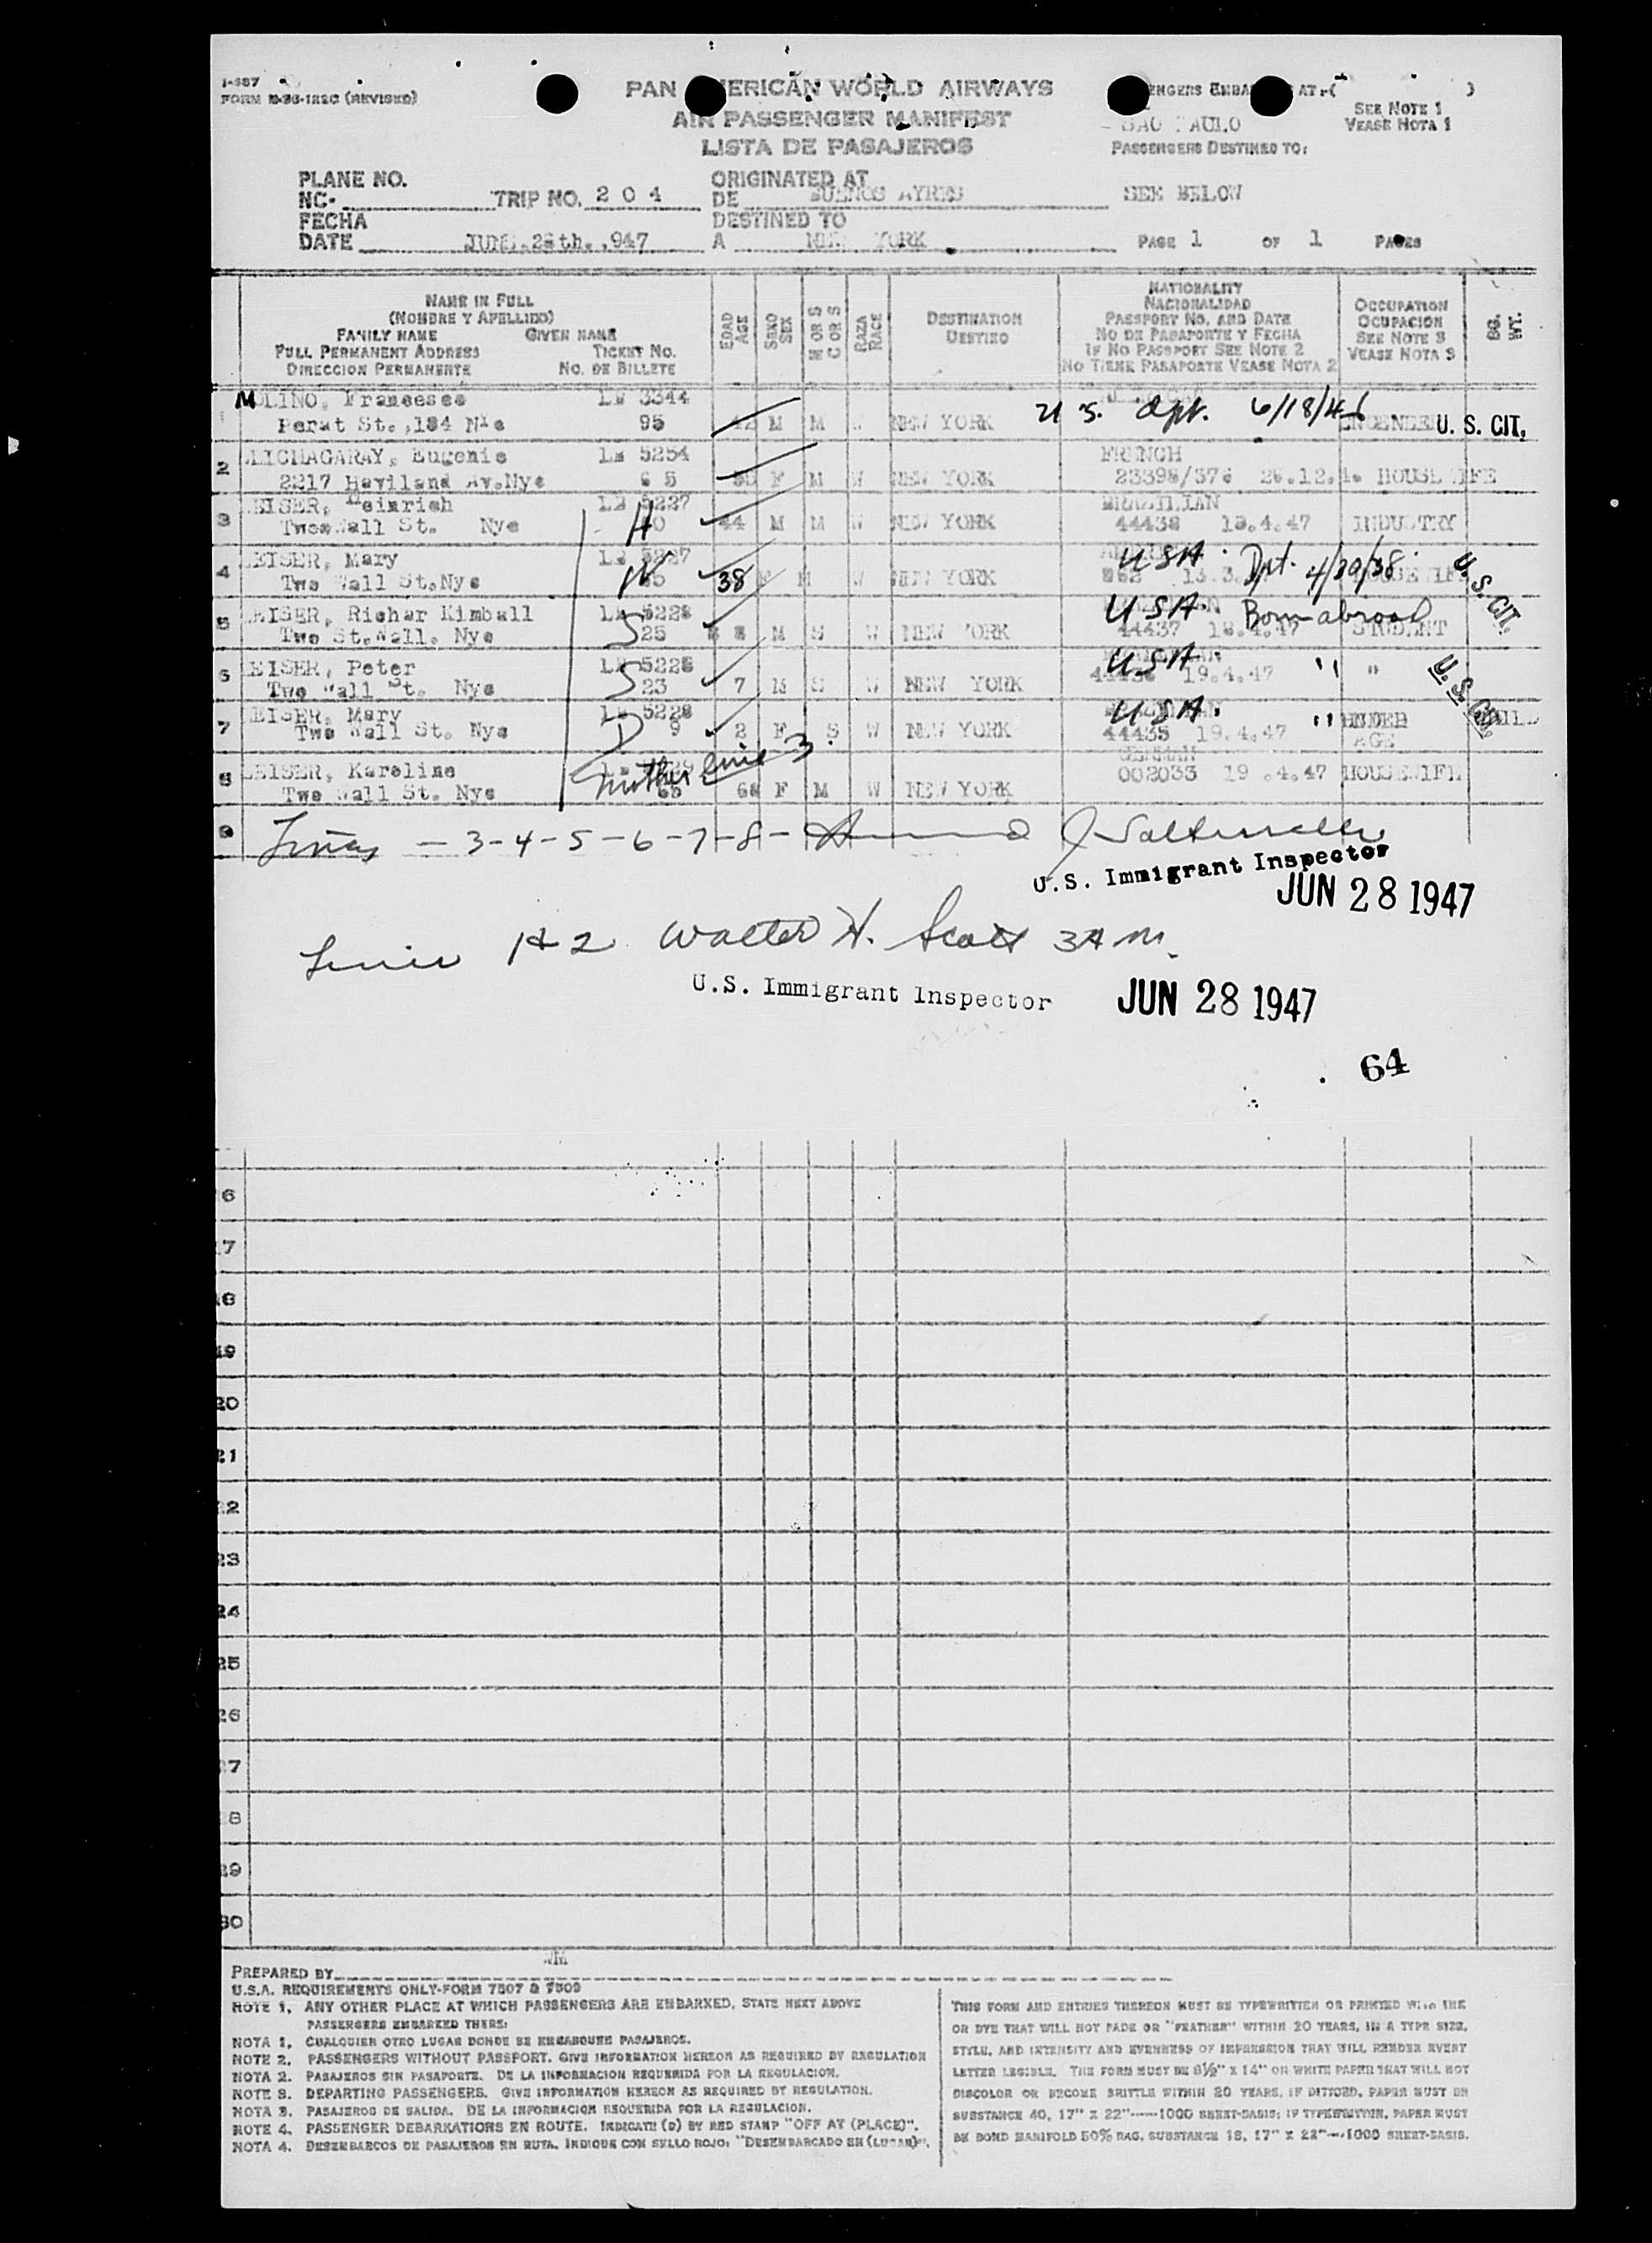 I-487
FORM (REVISED)
PAN AMERICAN WORLD AIRWAYS
AIR PASSENGER MANIFEST
LISTA DE PASAJEROS
ENGERS EMBA AT-( )
SEE NOTE 1
VEASE NOTA 1
SAO PAULO
PASSENGERS DESTINED TO:
SEE BELOW
PLANE NO.
NC- TRIP NO. 2 0 4
FECHA
DATE 947
ORIGINATED AT
DE BUENOS AYRES
DESTINED TO
A NEW YORK
PAGE 1 OF 1 PAGES
NAME IN FULL
(NOMBRE Y APELLIDO)
FAMILY NAME GIVEN NAME
FULL PERMANENT ADDRESS TICKET NO.
DIRECCION PERMANENTE NO. DE BILLETE
EDAD AGE
SEXO SEX
M OR S C OR S
RAZA RACE
DESTINATION
DESTINO
NATIONALITY
NACIONALIDAD
PASSPORT NO. AND DATE
NO DE PASAPORTE Y FECHA
IF NO PASSPORT SEE NOTE 2
NO TIENE PASAPORTE VEASE NOTA 2
OCCUPATION
OCUPACION
SEE NOTE 3
VEASE NOTA 3
BG. WT.
MOLINO, Francesco 3344
St.,184 95 M M NEW YORK U.S. 6/18/46 U. S. CIT.
2 Eugenie 5254 FRENCH
2217 Haviland Av.Nye 65 F M W NEW YORK HOUSEWIFE
3 EISER, Heinrich 5227 BRAZILIAN
Two Wall St. Nye H 44 M M W NEW YORK 44438 INDUSTRY
4 EISER, Mary USA. 4/30/38
Two Wall St.Nye W 38 F M W NEW YORK U. S. CIT.
5 EISER, Richar Kimball 5228 USA. Born abroad
Two St.Wall. Nye S 25 M S W NEW YORK 44437 STUDENT
6 EISER, Peter 5228 USA. " "
Two Wall St. Nye S 23 7 M S W NEW YORK 19.4.47 U. S. CIT.
7 EISER, Mary 5228 USA. "
Two Wall St. Nye D 9 2 F S W NEW YORK 44435 19.4.47 UNDER AGE
8 EISER, Karoline mother line 3 GERMAN
Two Wall St. Nye 65 F M W NEW YORK 002033 19.4.47 HOUSEWIFE
9 Lines - 3-4-5-6-7-8-
U.S. Immigrant Inspector
JUN 28 1947
Lines 1&2 Walter H. Scott
U.S. Immigrant Inspector JUN 28 1947
64
6
7
8
19
20
21
22
23
24
25
26
27
28
29
30
PREPARED BY
U.S.A. REQUIREMENTS ONLY-FORM 7507 & 7509
NOTE 1. ANY OTHER PLACE AT WHICH PASSENGERS ARE EMBARKED, STATE NEXT ABOVE
PASSENGERS EMBARKED THERE:
NOTA 1. CUALQUIER OTRO LUGAR DONDE SE EMBARQUEN PASAJEROS.
NOTE 2. PASSENGERS WITHOUT PASSPORT. GIVE INFORMATION HEREON AS REQUIRED BY REGULATION
NOTA 2. PASAJEROS SIN PASAPORTE. DE LA INFORMACION REQUERIDA POR LA REGULACION.
NOTE 3. DEPARTING PASSENGERS. GIVE INFORMATION HEREON AS REQUIRED BY REGULATION.
NOTA 3. PASAJEROS DE SALIDA. DE LA INFORMACION REQUERIDA POR LA REGULACION.
NOTE 4. PASSENGER DEBARKATIONS EN ROUTE. INDICATE (D) BY RED STAMP "OFF AT (PLACE)".
NOTA 4. DESEMBARCOS DE PASAJEROS EN RUTA. INDIQUE CON SELLO ROJO: "DESEMBARCADO EN (LUGAR)".
THIS FORM AND ENTRIES THEREON MUST BE TYPEWRITTEN OR PRINTED WITH INK
OR DYE THAT WILL NOT FADE OR "FEATHER" WITHIN 20 YEARS, IN A TYPE SIZE,
STYLE, AND INTENSITY AND EVENNESS OF IMPRESSION THAT WILL RENDER EVERY
LETTER LEGIBLE. THE FORM MUST BE 8½" X 14" ON WHITE PAPER THAT WILL NOT
DISCOLOR OR BECOME BRITTLE WITHIN 20 YEARS. IF DITTOED, PAPER MUST BE
SUBSTANCE 40, 17" X 22"-1000 SHEET-BASIS; IF TYPEWRITTEN, PAPER MUST
BE BOND MANIFOLD 50% RAG, SUBSTANCE 18, 17" X 22"-1000 SHEET-BASIS.